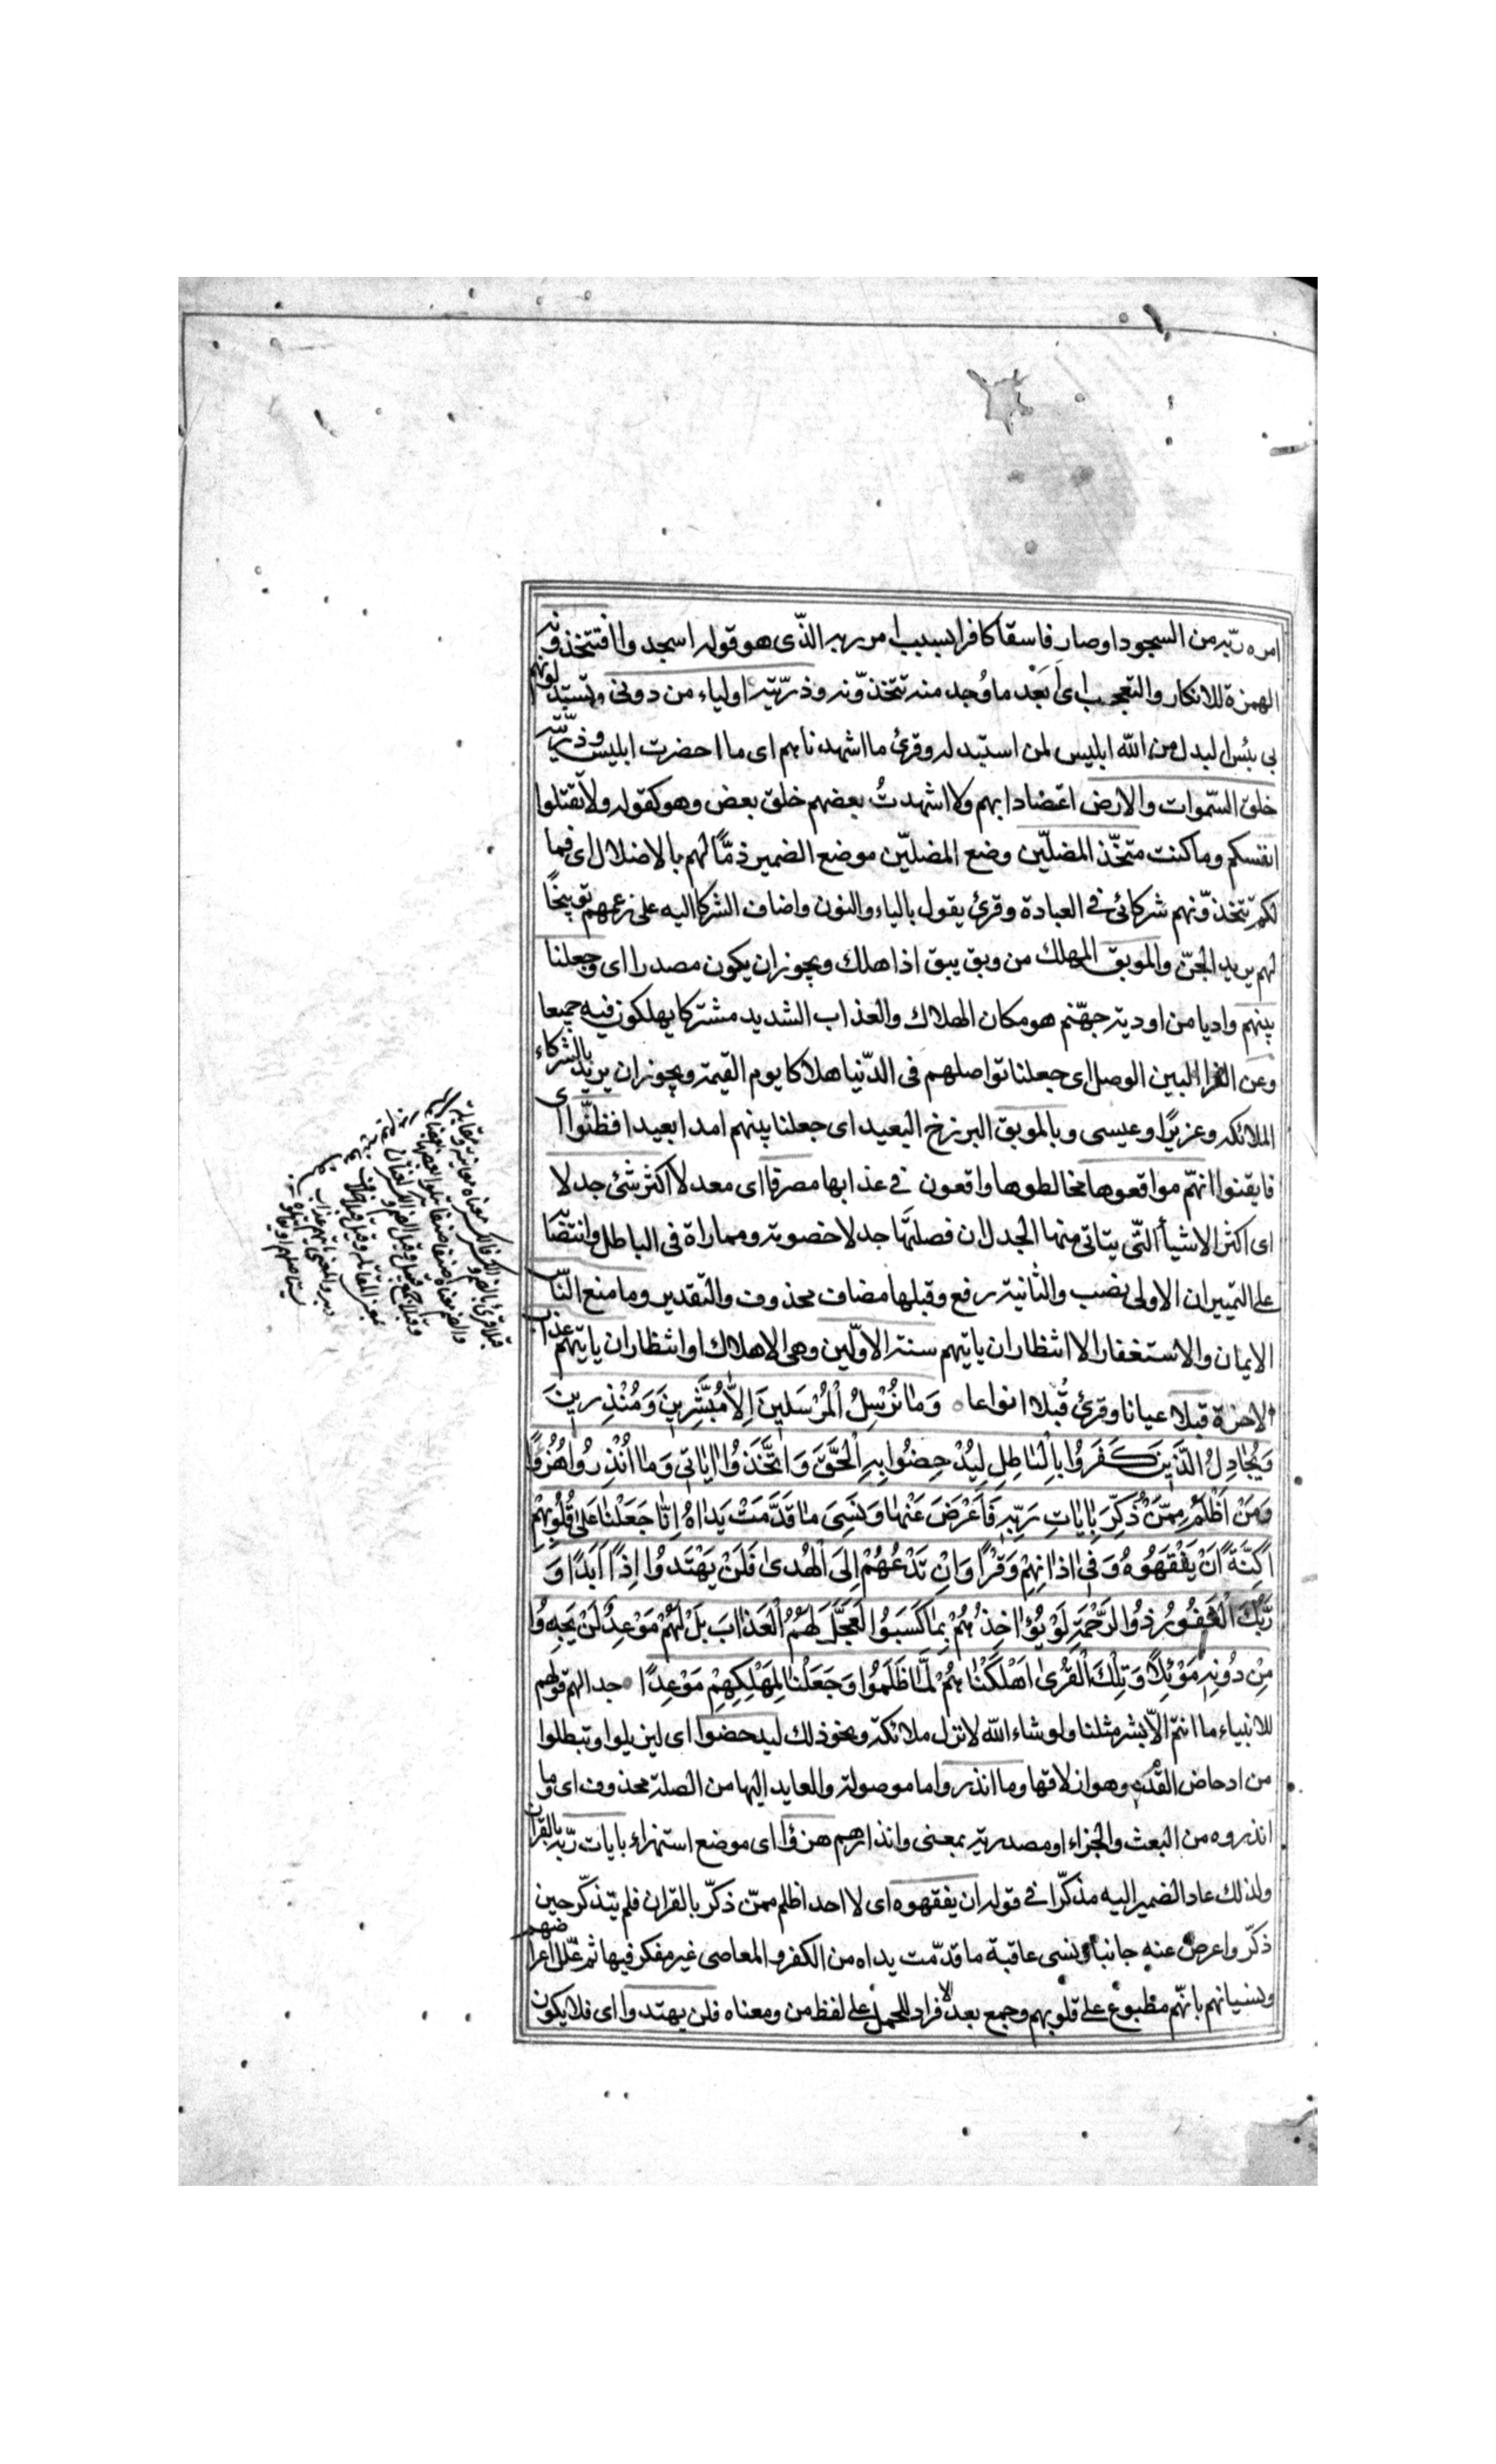 امره ربّه من السجود او صار فاسقا كافرا بسبب امر ربه الذّى هو قوله اسجدوا افتتّخذونه
الهمزة للانكار والتعجب اى اَبَعْد ما وُجد منه تتخذّونه وذرّيّته اولياء من دونى وتستبدلونهم
بى بئس البدل من الله ابليس لمن استبدله وقرئ ما اشهدناهم اى ما احضرت ابليس وذرّيّته
خلق السّموات والارض اعتضادا بهم ولا اشهدتُ بعضهم خلق بعض وهو كقوله ولا تقتلوا
انفسكم وما كنت متخّذ المضلّين وضع المضلّين موضع الضمير ذمًّا لهم بالاضلال اى فما
لكم تتخذّونهم شركائى فى العبادة وقرئ يقول بالياء والنون واضاف الشركا اليه على زعمهم توبيخًا
لهم يريد الجنّ والموبق المهلك من وبق يبق اذا هلك ويجوز ان يكون مصدرا اى وجعلنا
بينهم واديا من اودية جهنّم هو مكان الهلاك والعذاب الشديد مشتركا يهلكون فيه جميعا
وعن الفرا البين الوصل اى جعلنا تواصلهم فى الدّنيا هلاكا يوم القيمة ويجوز ان يريد بالشركاء
الملائكه وعزيرًا وعيسى وبالموبق البرزخ البعيد اى جعلنا بينهم امدا بعيدا فظنّوا اى
فايقنوا انهّم مواقعوها مخالطوها واقعون فى عذابها مصرفا اى معدلا اكثر شئ جدلا
اى اكثر الاشيأ التّى يتاتى منها الجدل ان فصلتها جدلا خصوية ومماراة فى الباطل وانتصابه
على التمييز ان الاولى نصب والثانية رفع وقبلها مضاف محذوف والتقدير وما منع النّاس
الايمان والاستغفار الا انتظار ان ياتيهم سنة الاوّلين وهى الاهلاك او انتظار ان ياتيهم عذاب
الاخرة قبلا عيانا وقرئ قُبلا انواعا ۰ وَمَا نُرْسِلُ الْمُرْسَلِينَ اِلاَّ مُبَشِّرِينَ وَمُنْذِرِينَ
وَيُجَادِلُ الَّذِينَ كَفَرُوا بِالْبَاطِلِ لِيُدْحِضُوا بِهِ الْحَقَّ وَاتَّخَذُوا ايَاتِى وَمَا اُنْذِرُوا هُزُوًا
وَمَنْ اَظْلَمُ مِمَّنْ ذُكِّرَ بِايَاتِ رَبِّهِ فَاَعْرَضَ عَنْهَا وَنَسِىَ مَا قَدَّمَتْ يَدَاهُ اِنَّا جَعَلْنَا عَلَى قُلُوبِهِمْ
اَكِنَّةً اَنْ يَفْقَهُوهُ وَفِى اذَانِهِمْ وَقْرًا وَاِنْ تَدْعُهُمْ اِلَى الْهُدَى فَلَنْ يَهْتَدُوا اِذًا اَبَدًا وَ
رَبُّكَ الْغَفُورُ ذُو الرَّحْمَةِ لَوْ يُؤَاخِذُهُمْ بِمَا كَسَبُوا لَعَجَّلَ لَهُمُ الْعَذَابَ بَلْ لَهُمْ مَوْعِدٌ لَنْ يَجِدُوا
مِنْ دُونِهِ مَوْئِلًا وَتِلْكَ الْقُرَى اَهْلَكْنَاهُمْ لَمَّا ظَلَمُوا وَجَعَلْنَا لِمَهْلِكِهِمْ مَوْعِدًا ۰ جدالهم قولهم
للانبياء ما انتم الاّ بشر مثلنا ولو شاء الله لانزل ملائكة ونحو ذلك ليدحضوا اى ليزيلوا ويبطلوا
من ادحاض القدم وهو ازلاقها وما انذروا ما موصولة والعايد اليها من الصلة محذوف اى وما
انذروه من البعث والجزاء او مصدرية بمعنى وانذارهم هزؤا اى موضع استهزاء بايات ربّه بالقرآن
ولذلك عاد الضمير اليه مذكّرا فى قوله ان يفقهوه اى لا احد اظلم ممّن ذكّر بالقران فلم يتذكّر حين
ذكّر واعرض عنه جانبا ونسى عاقبة ما قدّمت يداه من الكفر والمعاصى غير مفكر فيها ثم علّل اعراضهم
ونسيانهم بانّهم مطبوع على قلوبهم وجمع بعد الافراد للحمل على لفظ من ومعناه فلن يهتدوا اى فلا يكون